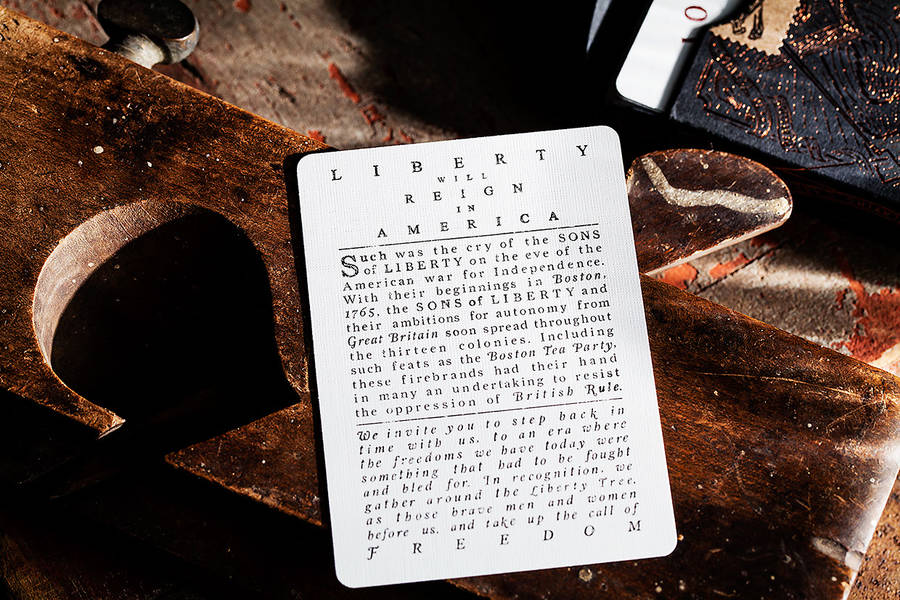 LIBERTY
WILL
REIGN
IN
AMERICA
Such was the cry of the SONS
of LIBERTY on the eve of the
American war for Independence.
With their beginnings in Boston,
1765, the SONS of LIBERTY and
their ambitions for autonomy from
Great Britain soon spread throughout
the thirteen colonies. Including
such feats as the Boston Tea Party,
these firebrands had their hand
in many an undertaking to resist
the oppression of British Rule.
We invite you to step back in
time with us, to an era where
the freedoms we have today were
something that had to be fought
and bled for. In recognition, we
gather around the Liberty Tree,
as those brave men and women
before us, and take up the call of
FREEDOM